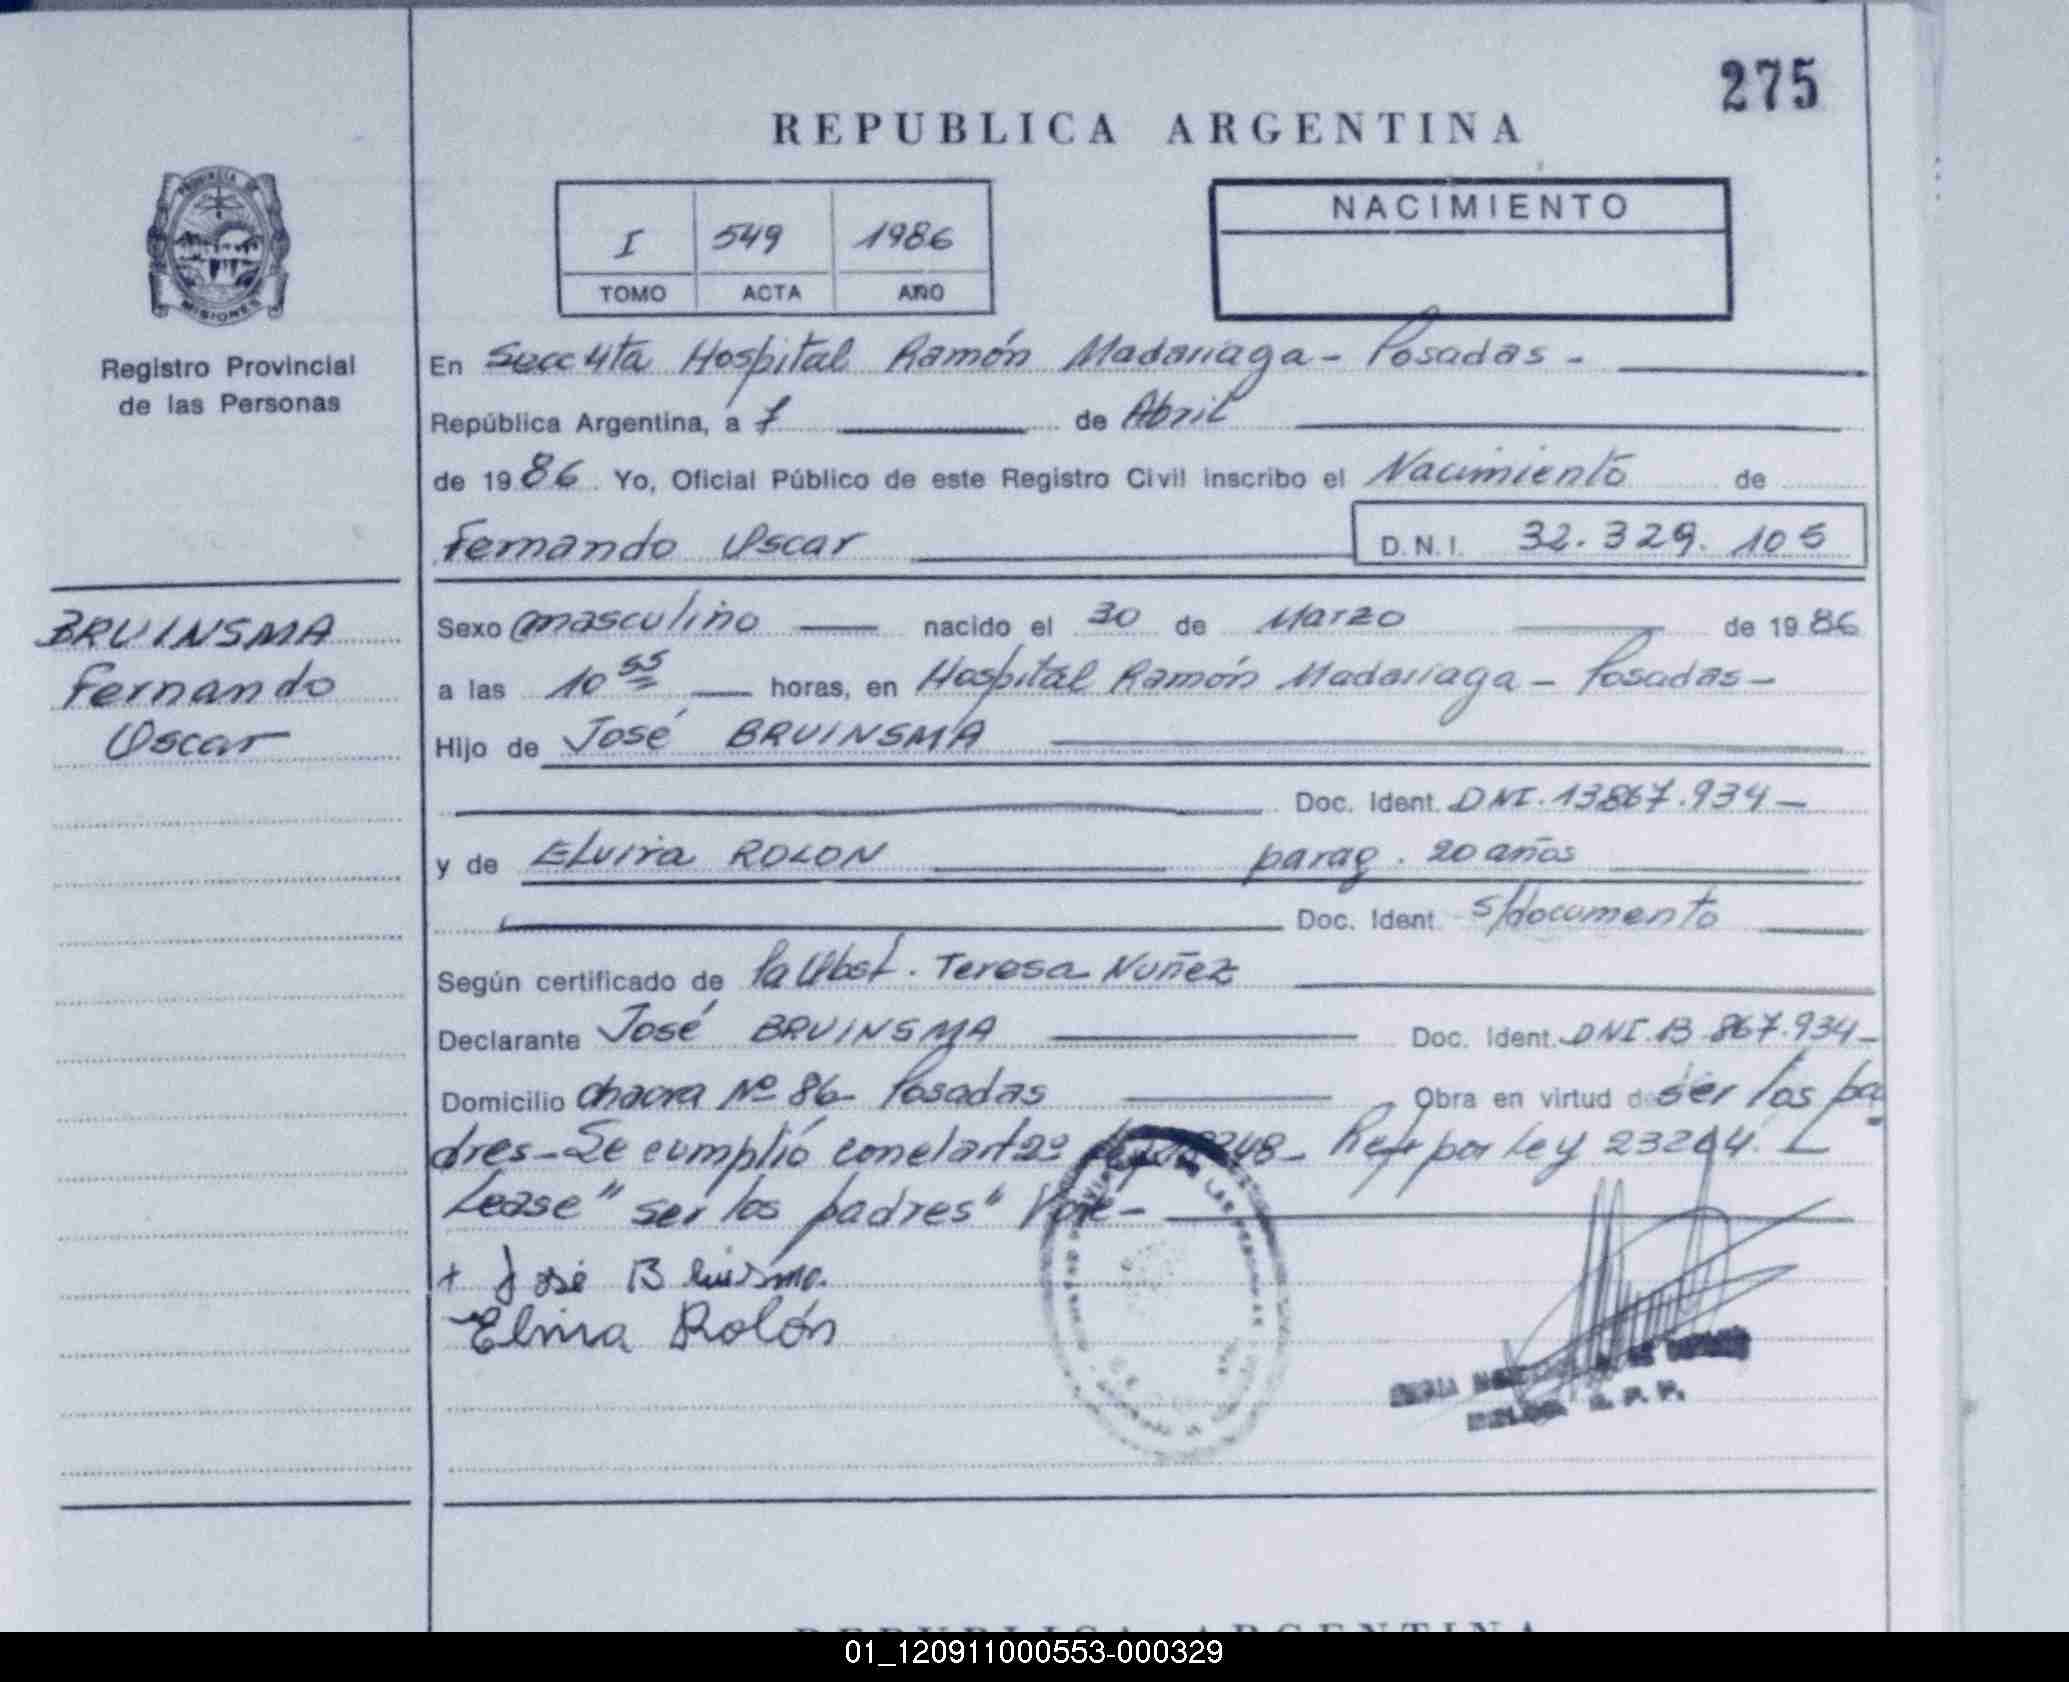 275
REPUBLICA ARGENTINA
I 549 1986
TOMO ACTA AÑO
NACIMIENTO
PROVINCIA DE
MISIONES
Registro Provincial
de las Personas
En Secc 4ta Hospital Ramón Madariaga - Posadas -
República Argentina, a 7 de Abril
de 1986. Yo, Oficial Público de este Registro Civil inscribo el Nacimiento de
Fernando Oscar D.N.I. 32.329.105
BRUINSMA
Fernando
Oscar
Sexo masculino nacido el 30 de Marzo de 1986
a las 10 55 horas, en Hospital Ramón Madariaga - Posadas -
Hijo de José BRUINSMA
Doc. Ident. DNI. 13867.934 -
y de Elvira ROLON parag. 20 años
Doc. Ident. s/documento
Según certificado de la Obst. Teresa Nuñez
Declarante José BRUINSMA Doc. Ident. DNI. 13.867.934 -
Domicilio chacra Nº 86 - Posadas Obra en virtud de ser los pa
dres - Se cumplió con el art 2º 248 - Ref por Ley 23264. L
Lease "ser los padres" Vale -
+ José Bruisma.
Elvira Rolón
R. P. P.
REPUBLICA ARGENTINA
01_120911000553-000329